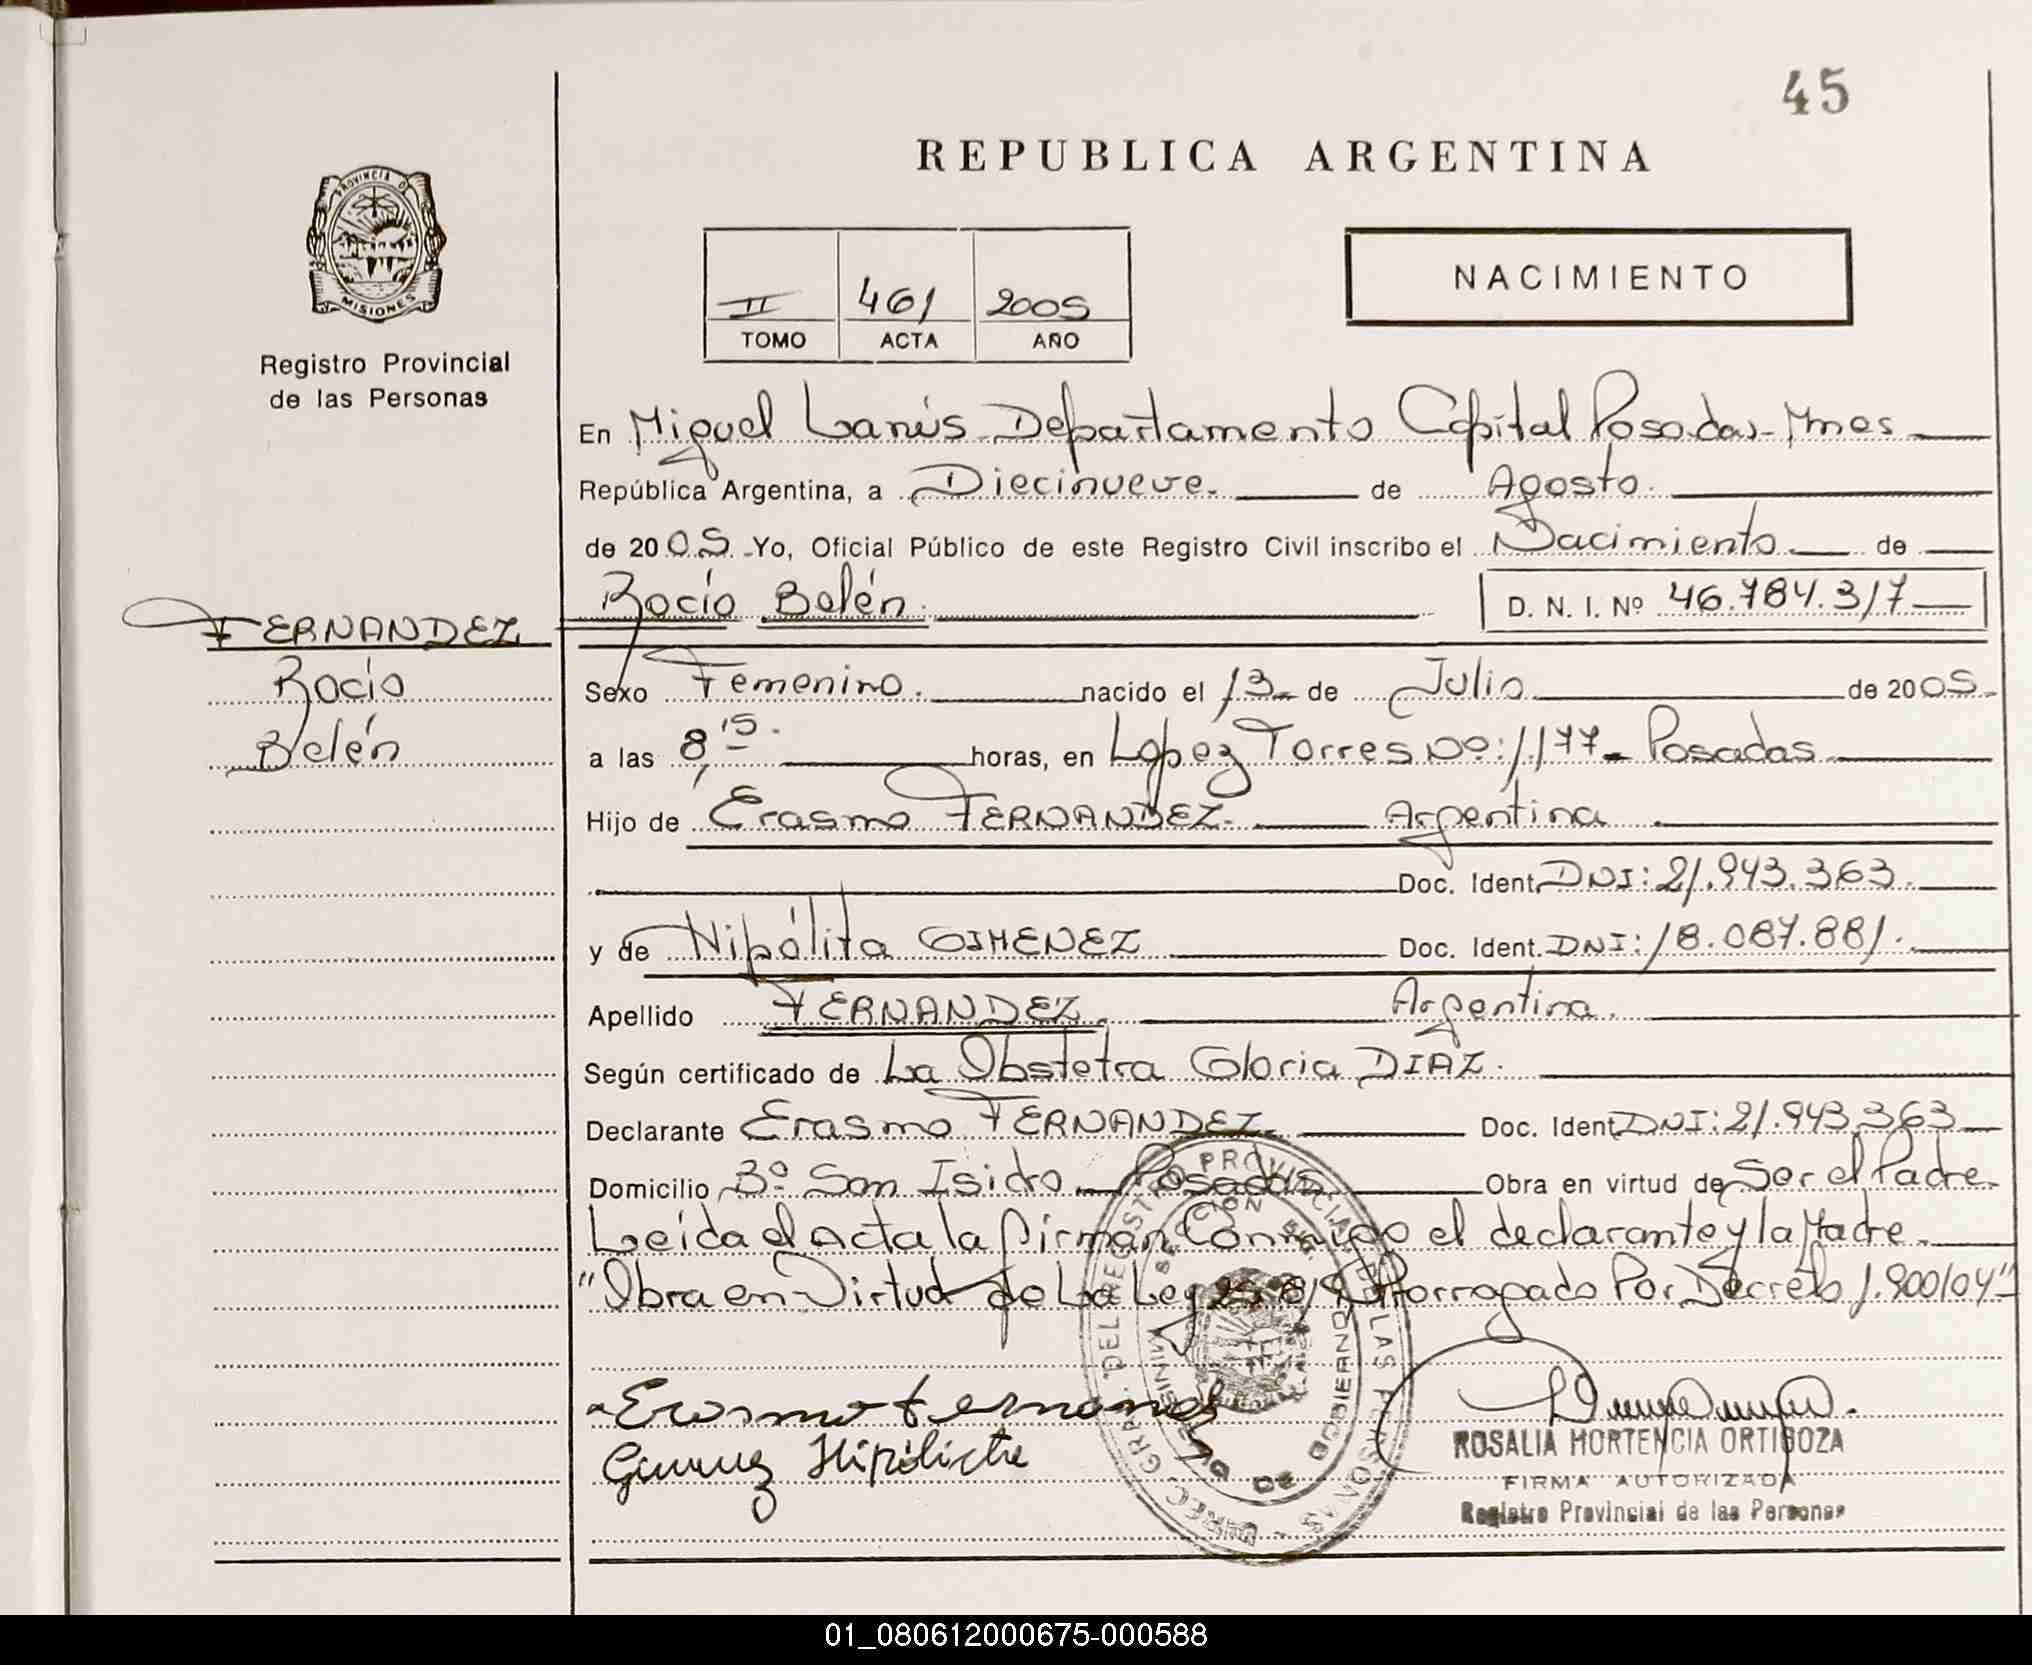 45
REPUBLICA ARGENTINA
PROVINCIA DE
MISIONES
Registro Provincial
de las Personas
II 461 2005
TOMO ACTA AÑO
NACIMIENTO
En Miguel Lanús - Departamento Capital Posadas - Mnes
República Argentina, a Diecinueve. de Agosto.
de 2005. Yo, Oficial Público de este Registro Civil inscribo el Nacimiento de
Rocío Belén. D. N. I. Nº 46.784.317
FERNANDEZ
Rocío
Belén
Sexo Femenino. nacido el 13 de Julio de 2005.
a las 8,15. horas, en Lopez Torres Nº: 1.177 - Posadas
Hijo de Erasmo FERNANDEZ. Argentina
Doc. Ident. DNI: 21.943.363.
y de Hipólita GIMENEZ Doc. Ident. DNI: 18.087.881.
Apellido FERNANDEZ. Argentina.
Según certificado de La Obstetra Gloria DIAZ.
Declarante Erasmo FERNANDEZ. Doc. Ident. DNI: 21.943.363
Domicilio Bº San Isidro - Posadas Obra en virtud de Ser el Padre.
Leída el acta la firman Conmigo el declarante y la Madre.
"Obra en Virtud de La Ley 25.819 Prorrogado Por Decreto 1.900/04"
Erasmo fernandez
Hipólicte
ROSALIA HORTENCIA ORTIGOZA
FIRMA AUTORIZADA
Registro Provincial de las Personas
DIREC. GRAL. DEL REGISTRO PROVINCIAL DE LAS PERSONAS
MINISTERIO DE GOBIERNO
01_080612000675-000588